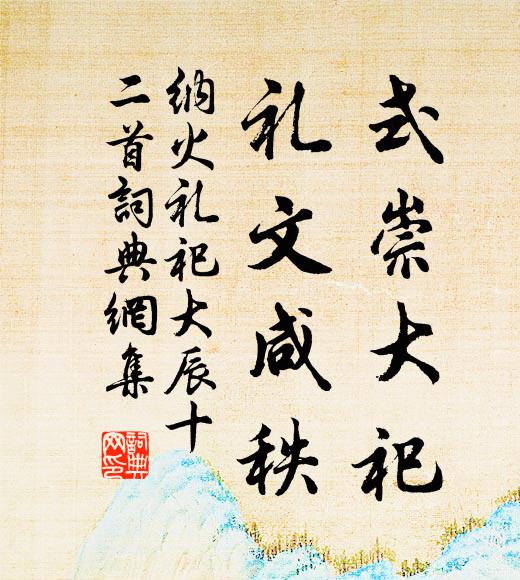 式崇大祀
礼文咸秩
纳火礼祀大辰十
二首詞典網集
詞典
网印